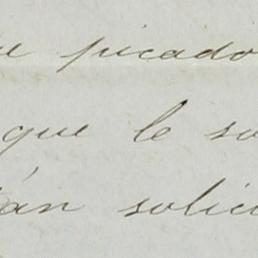 picado
que le so
án solici